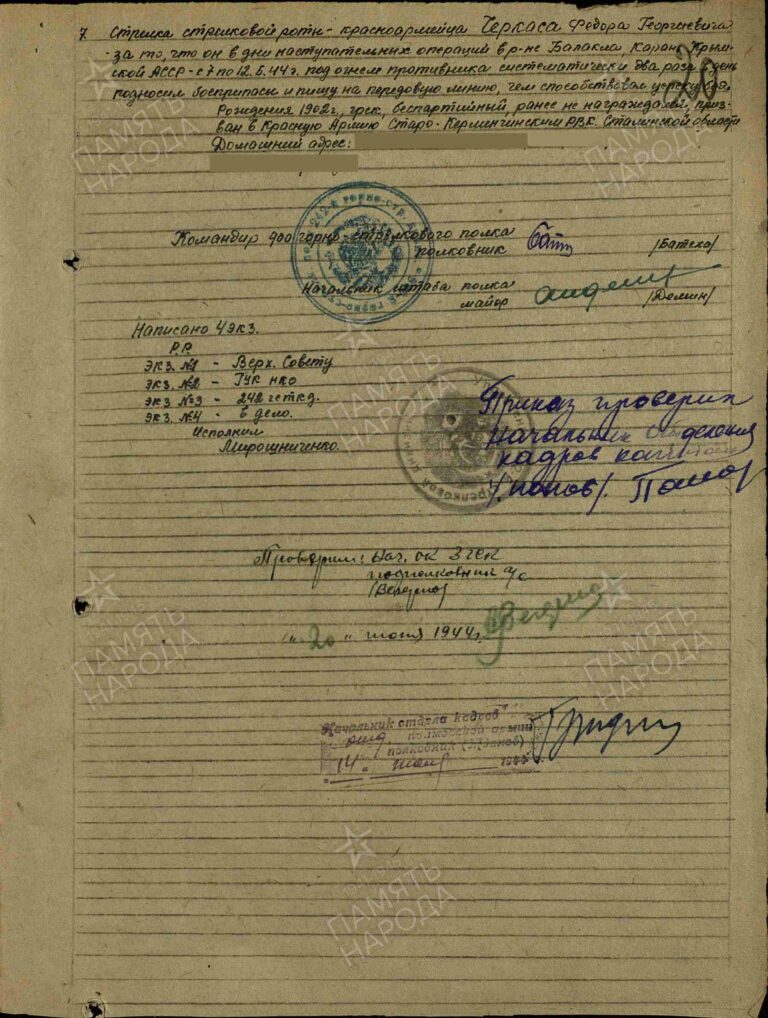 7. Стрелка стрелковой роты - красноармейца Черкаса Федора Георгиевича
- за то, что он в дни наступательных операций в р-не Балакла, Карань, Крым-
ской АССР - с 7 по 12.5.44 г. под огнем противника систематически два раза в день
подносил боеприпасы и пищу на передовую линию, чем способствовал успеху боя.
20
Рождения 1902 г., грек, беспартийный, ранее не награждался, приз-
ван в Красную Армию Старо-Керменчикским РВК. Сталинской области
Домашний адрес:
Командир 900 горно-стрелкового полка
полковник /Батеха/
Начальник штаба полка
майор /Демин/
Написано 4 экз.
Р.Р.
экз. №1 - Верх. Совету
экз. №2 - ГУК НКО
экз №3 - 242 гсткд.
экз. №4 - в дело.
Исполнил
Мирошниченко.
Приказ проверил
Начальник отделения
кадров
/Попов/.
Проверил: Нач. ОК 3 ГСК
подполковник а/с
"20" июня 1944 г.
Начальник отдела кадров
армии
полковник
14 июня
ПАМЯТЬ
НАРОДА
ПАМЯТЬ
НАРОДА
ПАМЯТЬ
НАРОДА
ПАМЯТЬ
НАРОДА
ПАМЯТЬ
НАРОДА
ПАМЯТЬ
НАРОДА